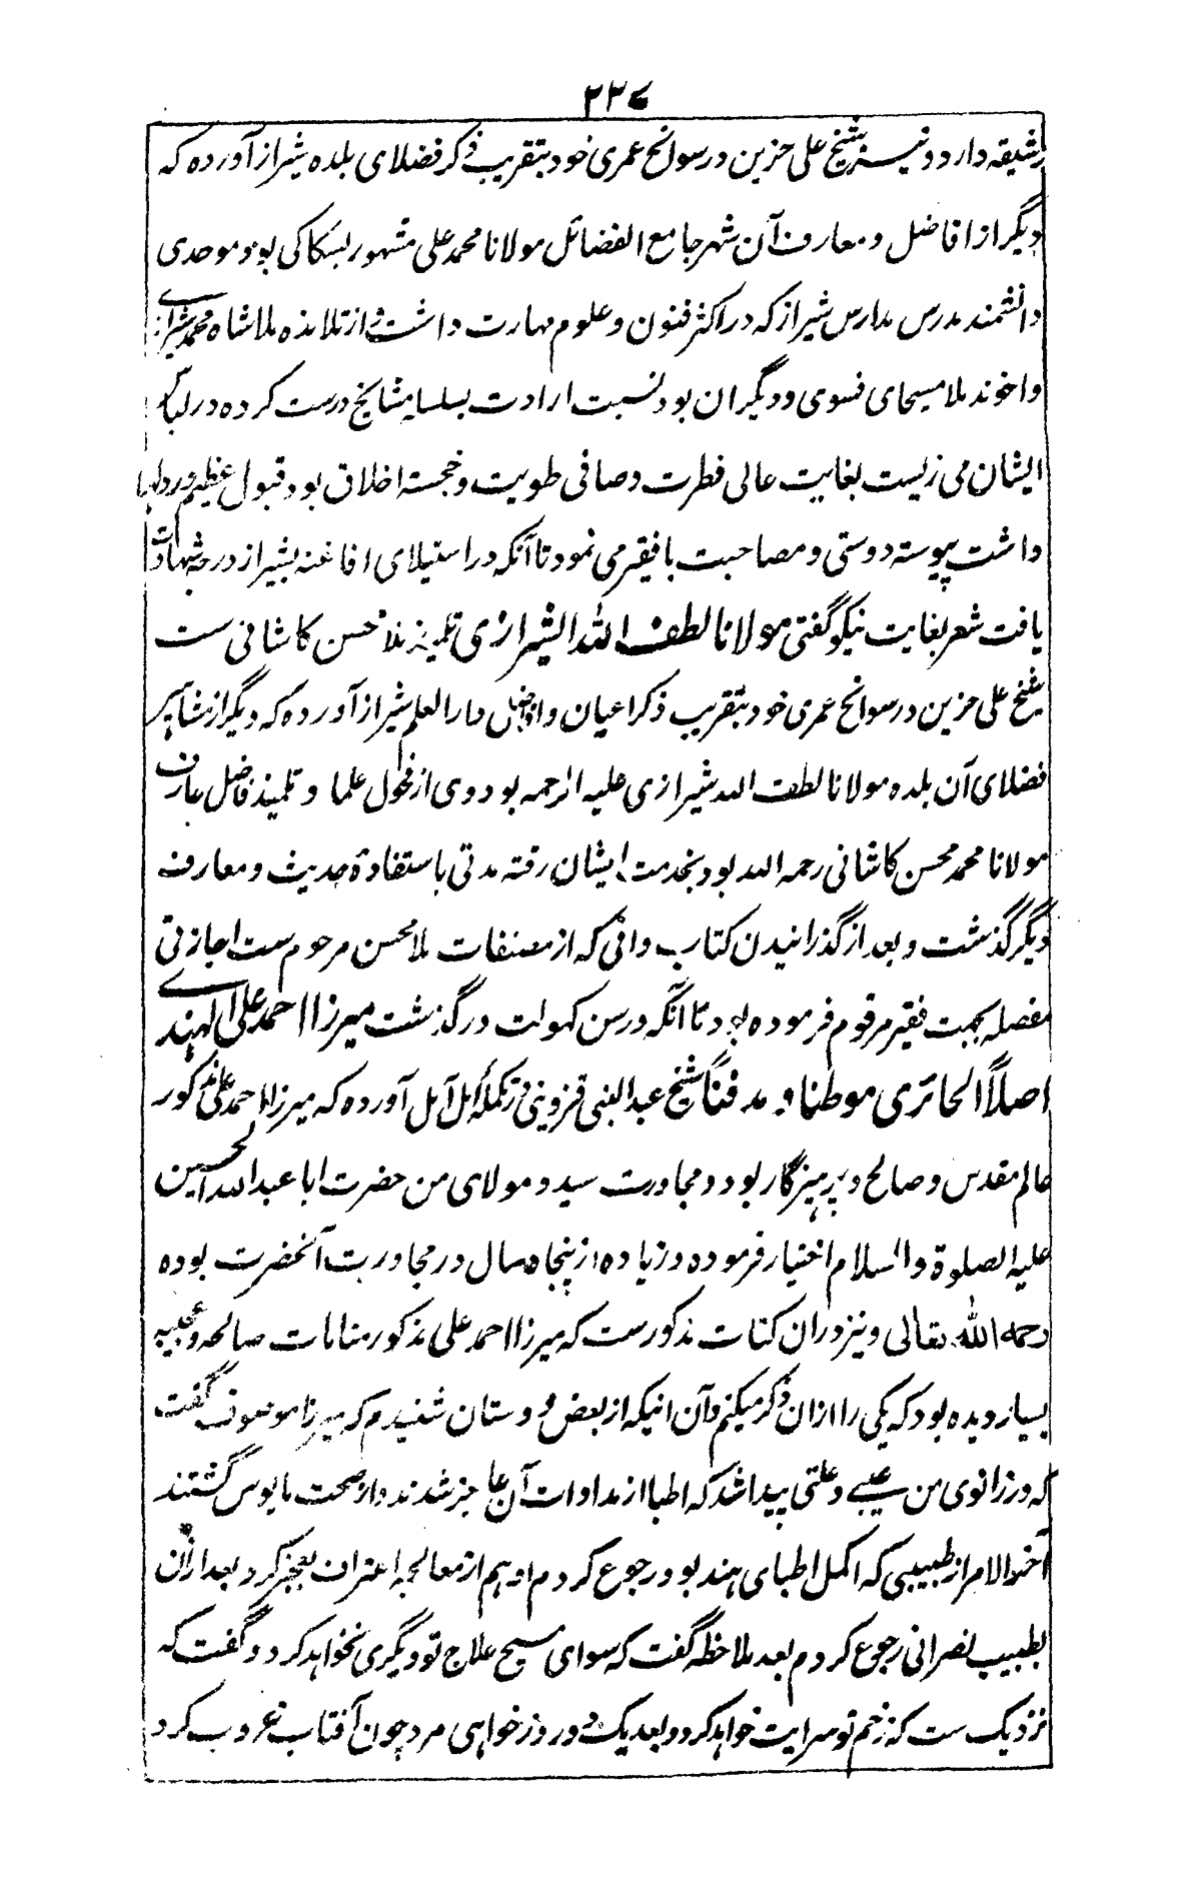 ۲۳۷
رشیقه دارد و نیز شیخ علی حزین در سوانح عمری خود بتقریب ذکر فضلای بلده شیراز آورده که
دیگر از افاضل و معارف آن شهر جامع الفضائل مولانا محمد علی مشهور بسکاکی بود موحدی
دانشمند مدرس مدارس شیراز که در اکثر فنون و علوم مهارت داشت و از تلامذه ملا شاه محمد شیرازی
و اخوند ملا مسیحای فسوی و دیگران بود نسبت ارادت بسلسله مشایخ درست کرده در لباس
ایشان می زیست بغایت عالی فطرت و صافی طویت و خجسته اخلاق بود قبول عظیم در دلها
داشت پیوسته دوستی و مصاحبت با فقیر می نمود تا آنکه در استیلای افاغنه بشیراز درجه شهادت
یافت شعر بغایت نیکو گفتی مولانا لطف الله الشیرازی تلمیذ ملا محسن کاشانی ست
شیخ علی حزین در سوانح عمری خود بتقریب ذکر اعیان و افاضل دار العلم شیراز آورده که دیگر از مشاهیر
فضلای آن بلده مولانا لطف الله شیرازی علیه الرحمه بود وی از فحول علما و تلمیذ فاضل عارف
مولانا محمد محسن کاشانی رحمه الله بود بخدمت ایشان رفته مدتی باستفادۀ حدیث و معارف
دیگر گذشت و بعد از گذرانیدن کتاب وافی که از مصنفات ملا محسن مرحوم ست اجازتی
مفصله بجهت فقیر مرقوم فرموده بود تا آنکه در سن کهولت در گذشت میرزا احمد علی الهندی
اصلاً الحائری موطنا و مدفناً شیخ عبد النبی قزوینی در تکملۀ امل آمل آورده که میرزا احمد علی مذکور
عالم مقدس و صالح و پرهیزگار بود و مجاورت سید و مولای من حضرت ابا عبد الله الحسین
علیه الصلوة والسلام اختیار فرموده و زیاده از پنجاه سال در مجاورت آنحضرت بوده
رحمه الله تعالی و نیز دران کتاب مذکورست که میرزا احمد علی مذکور منامات صالحه و عجیبه
بسیار دیده بود که یکی را ازان ذکر میکنم و آن اینکه از بعض دوستان شنیدم که میرزا موصوف گفت
که در زانوی من عیبے و علتی پیدا شد که اطبا از مداوات آن عاجز شدند و از صحت مایوس گشتند
آخر الامر از طبیبی که اکمل اطبای هند بود رجوع کردم او هم از معالجه اعتراف بعجز کرد بعد ازان
بطبیب نصرانی رجوع کردم بعد ملاحظه گفت که سوای مسیح علاج تو دیگری نخواهد کرد و گفت که
نزدیک ست که زخم تو سرایت خواهد کرد و بعد یک دو روز خواهی مرد چون آفتاب غروب کرد